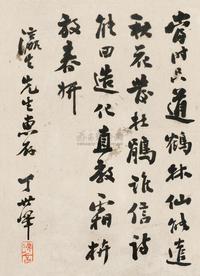 當時只道鶴林仙能遣
秋花發杜鵑誰信詩
能回造化直教霜枿
放春妍
瀛生先生惠存
丁世嶧